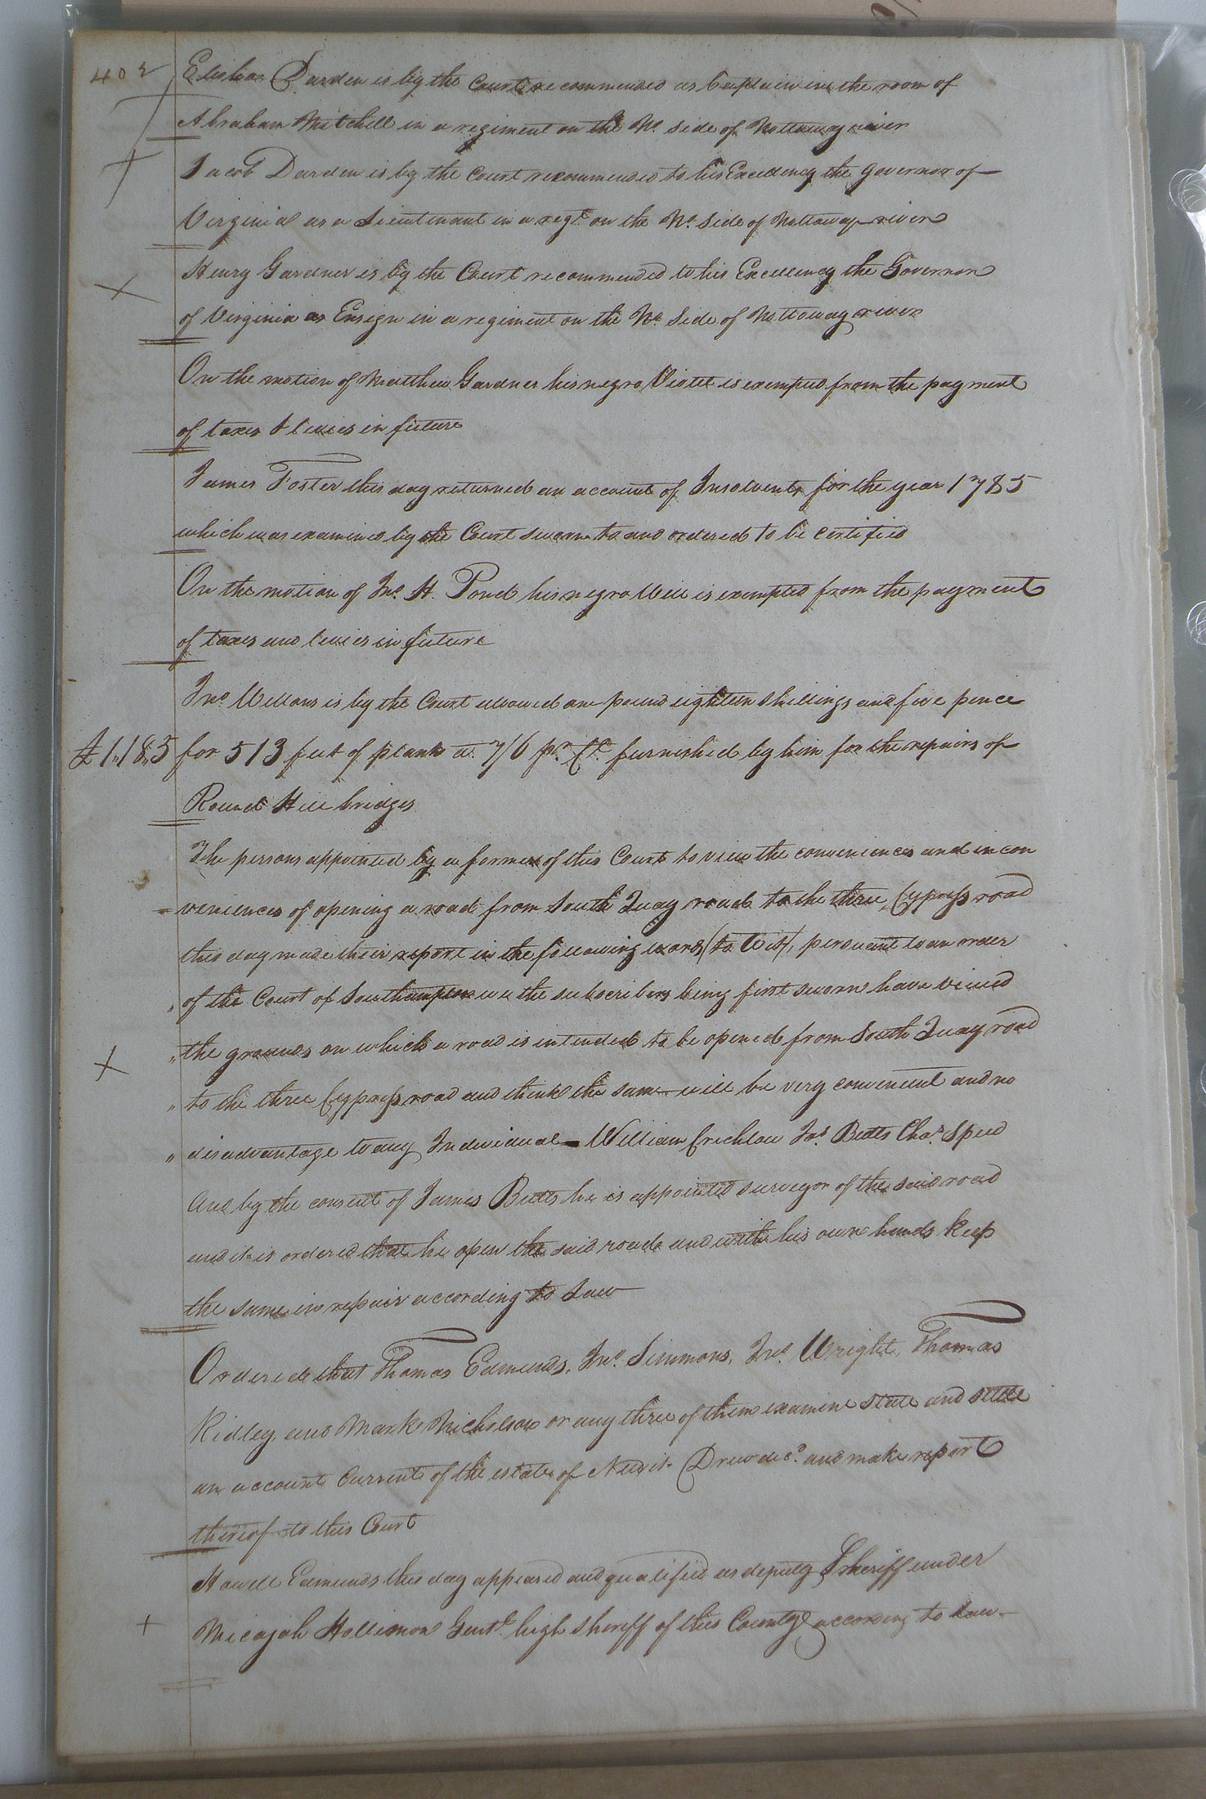 402
Elisha Darden is by the Court recommended as Captain in the room of
Abraham Mitchell in a regiment on the No. side of Nottoway river
Jacob Darden is by the Court recommended to his Excellency the Governor of
Virginia as a Lieutenant in a regt. on the No. side of Nottoway river
Henry Gardner is by the Court recommended to his Excellency the Governor
of Virginia as Ensign in a regiment on the No. side of Nottoway river
On the motion of Matthew Gardner his negro Violet is exempted from the payment
of taxes & levies in future
James Foster this day returned an account of Insolvents for the year 1785
which was examined by the Court sworn to and ordered to be certified
On the motion of Jno. H. Pond his negro Will is exempted from the payment
of taxes and levies in future
Jno. Wellons is by the Court allowed one pound eighteen shillings and five pence
£1.18.5 for 513 feet of plank a. 7/6 pr. Ct. furnished by him for the repairs of
Round Hill bridges
The persons appointed by a former of this Court to view the conveniences and incon
veniences of opening a road from South Quay road to the three Cypress road
this day made their report in the following words (to Wit), persuant to an order
" of the Court of Southampton we the subscribers being first sworn have viewed
" the grounds on which a road is intended to be opened from South Quay road
" to the three Cypress road and think the same will be very convenient and no
" disadvantage to any Individual - William Crichlow Jas. Butts Chas. Speed
And by the consent of James Butts he is appointed surveyor of the said road
and it is ordered that he open the said road and with his own hands keep
the same in repair according to Law
Ordered that Thomas Edmunds, Jno. Simmons, Jno. Wright, Thomas
Ridley and Mark Nicholson or any three of them examine state and settle
an account Current of the estate of Drew decd. and make report
thereof to this Court
Howell Edmunds this day appeared and qualified as deputy Sheriff under
Micajah Holliman Gentl. high Sheriff of this County according to Law